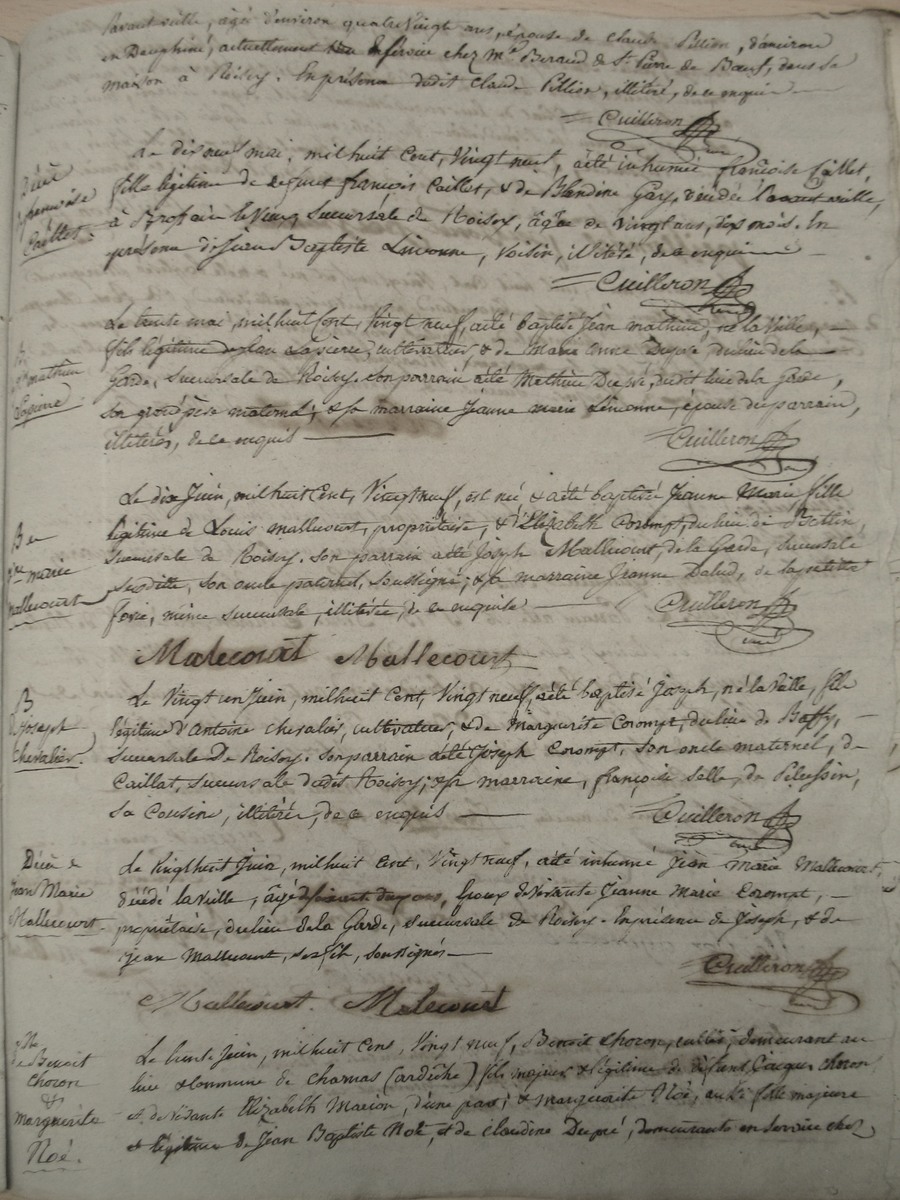 avant veille, âgée d'environ quatre vingt ans, épouse de claude Pillion, d'
en Dauphiné, actuellement en service chez Mr Beraud de St Pierre de Bœuf, dans sa
maison à Roisey. En présence dudit Claude Pillion, illitéré, de ce enquis
Cuilleron
Décès
françoise
Caillet.
Le dix neuf mai, mil huit Cent, Vingt neuf, a été inhumée françoise Caillet,
fille légitime de defunt françois Caillet, & de Blandine Gay, décédée l'avant veille,
à succursale de Roisey, âgée de vingt ans, dix mois. En
présence de Jean Baptiste Limonne, Voisin, illitéré, de ce enquis
Cuilleron
B
Jn mathieu
Lapierre
Le trente mai, mil huit Cent, Vingt neuf, a été baptisé Jean mathieu, né la Veille,
fils légitime de Lapierre, cultivateur, & de Marie Anne Dupré du lieu de la
Garde, succursale de Roisey. son parrain a été Mathieu Dupré, dudit lieu de la Garde,
son grand père maternel; & sa marraine Jeanne marie Limonne, épouse du parrain,
illitérés, de ce enquis
Cuilleron
B
jne marie
mallecourt
Le dix Juin, mil huit Cent, Vingt neuf, est née & a été baptisée Jeanne Marie fille
légitime de Louis mallecourt, propriétaire, & d'Elizabeth Corompt, du lieu de
succursale de Roisey. son parrain a été Joseph Mallecourt, de la Garde, succursale
susditte, son oncle paternel, soussigné; & sa marraine Jeanne Dalud, de la petitte
forie, même succursale, illitérée, de ce enquise
Cuilleron
Malecourt Mallecourt
B
Joseph
Chevalier.
Le Vingt un Juin, mil huit Cent, Vingt neuf, a été baptisé Joseph, né la Veille, fils
légitime d'Antoine chevalier, cultivateur, & de Marguerite Corompt, du lieu de Baffy,
succursale De Roisey. son parrain a été joseph Corompt, son oncle maternel, de
Caillat, succursale dudit Roisey; & sa marraine, françoise Salle, de Pelussin,
sa Cousine, illitérés, de ce enquis
Cuilleron
Décès
Jean Marie
Mallecourt
Le Vingt huit Juin, mil huit Cent, Vingt neuf, a été inhumé Jean Marie Mallecourt,
décédé la veille, âgé de soixante ans, Epoux de vivante Jeanne Marie Corompt,
propriétaire, du lieu de la Garde, succursale de Roisey. En présence de Joseph, & de
Jean Mallecourt, ses fils, soussignés
Cuilleron
Mallecourt. Malecourt
de Benoit
Choron
&
Marguerite
Noé.
Le trente Juin, mil huit Cent, Vingt neuf, Benoit Choron, demeurant au
lieu & commune de Charnas (ardèche) fils majeur & légitime de défunt Jacques choron
et de vivante Elizabeth Marion, d'une part; & marguerite Noé, aussi fille majeure
et légitime de Jean Baptiste Noé, et de claudine Dupré, demeurante en service chez